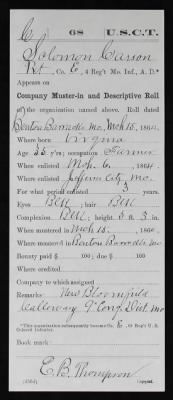 C 68 U.S.C.T.
Solomon Carson
Pvt, Co. E, 4 Reg't Mo. Inf., A. D.*
Appears on
Company Muster-in and Descriptive Roll
of the organization named above. Roll dated
Benton Barracks Mo, Mch 15, 1864.
Where born Virginia
Age 35 y'rs; occupation Farmer
When enlisted Mch. 6, 1864.
Where enlisted Jefferson City, Mo.
For what period enlisted 3 years.
Eyes Blk; hair Blk
Complexion Blk; height 5 ft. 3 in.
When mustered in Mch 15, 1864.
Where mustered in Benton Barracks Mo
Bounty paid $ 100; due $ 100
Where credited
Company to which assigned
Remarks: New Bloomfield
Calloway 9" Cong. Dist. Mo
*This organization subsequently became Co. E, 68 Reg't U.S. Colored Infantry.
Book mark:
E. B. Thompson
Copyist.